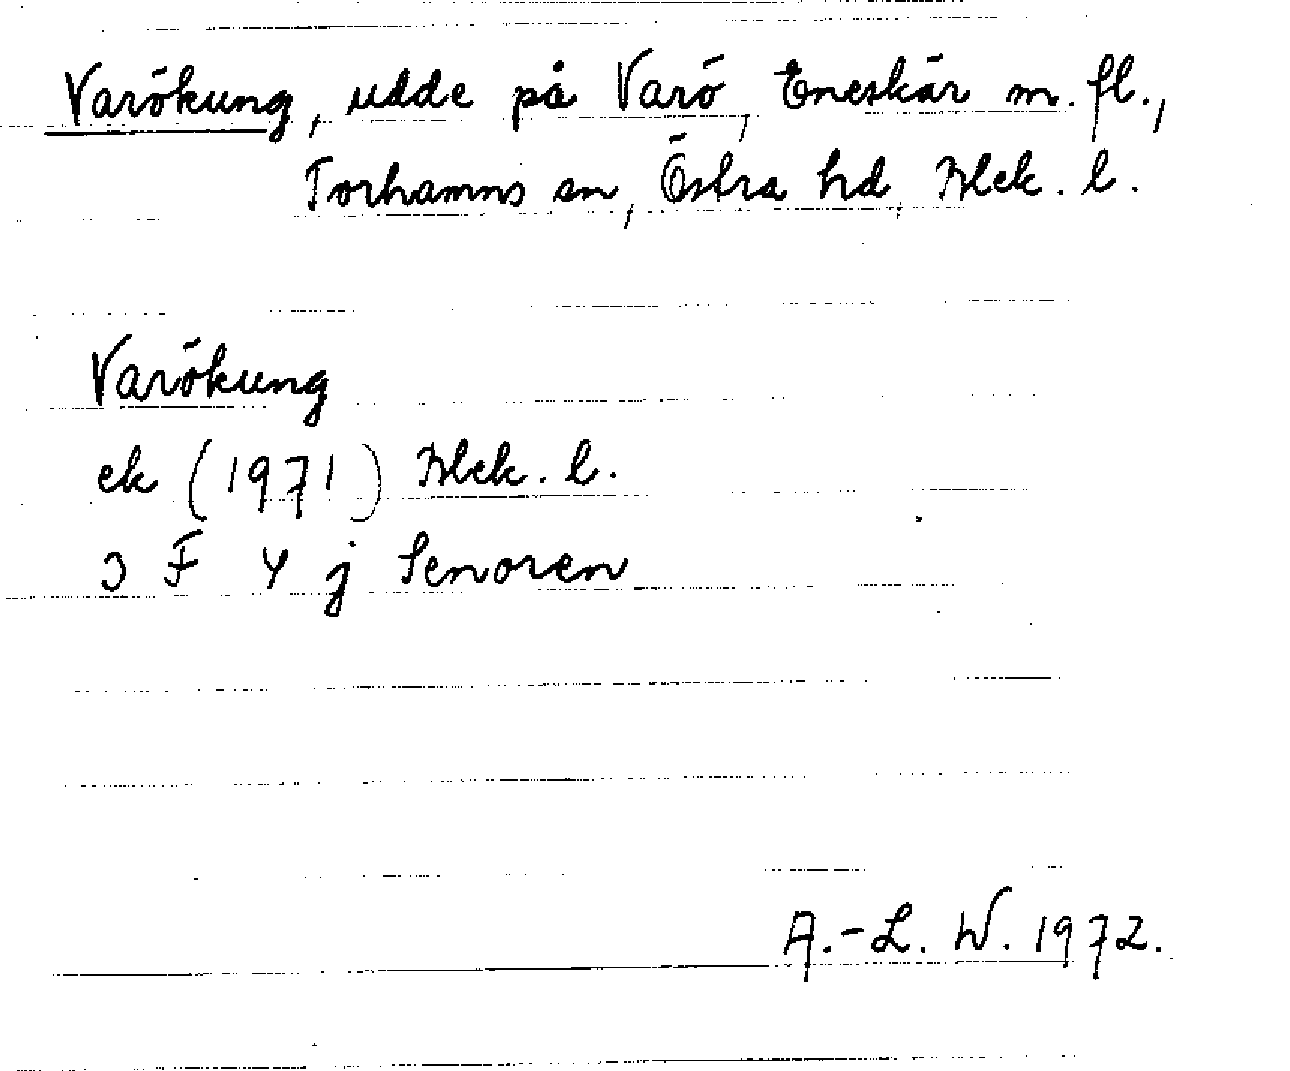 Varökung, udde på Varö, Eneskär m. fl.,
Torhamns sn, Östra hd, Blek. l.
Varökung
ek (1971) Blek. l.
3 F 4 j Senoren
A.-L. W. 1972.